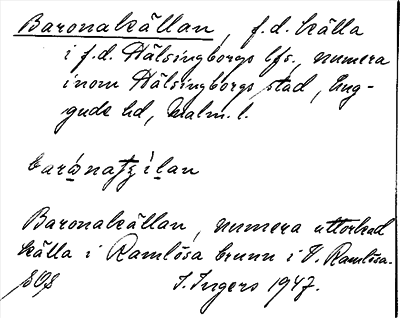 Baronakällan, f.d. källa
i f.d. Hälsingborgs lfs., numera
inom Hälsingborgs stad, Lug-
gude hd, Malm. l.
Baronakällan, numera uttorkad
källa i Ramlösa brunn i V. Ramlösa.
SOS I. Ingers 1947.